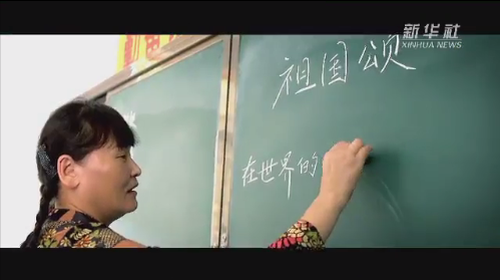 新华社
XINHUA NEWS
祖国颂
在世界的